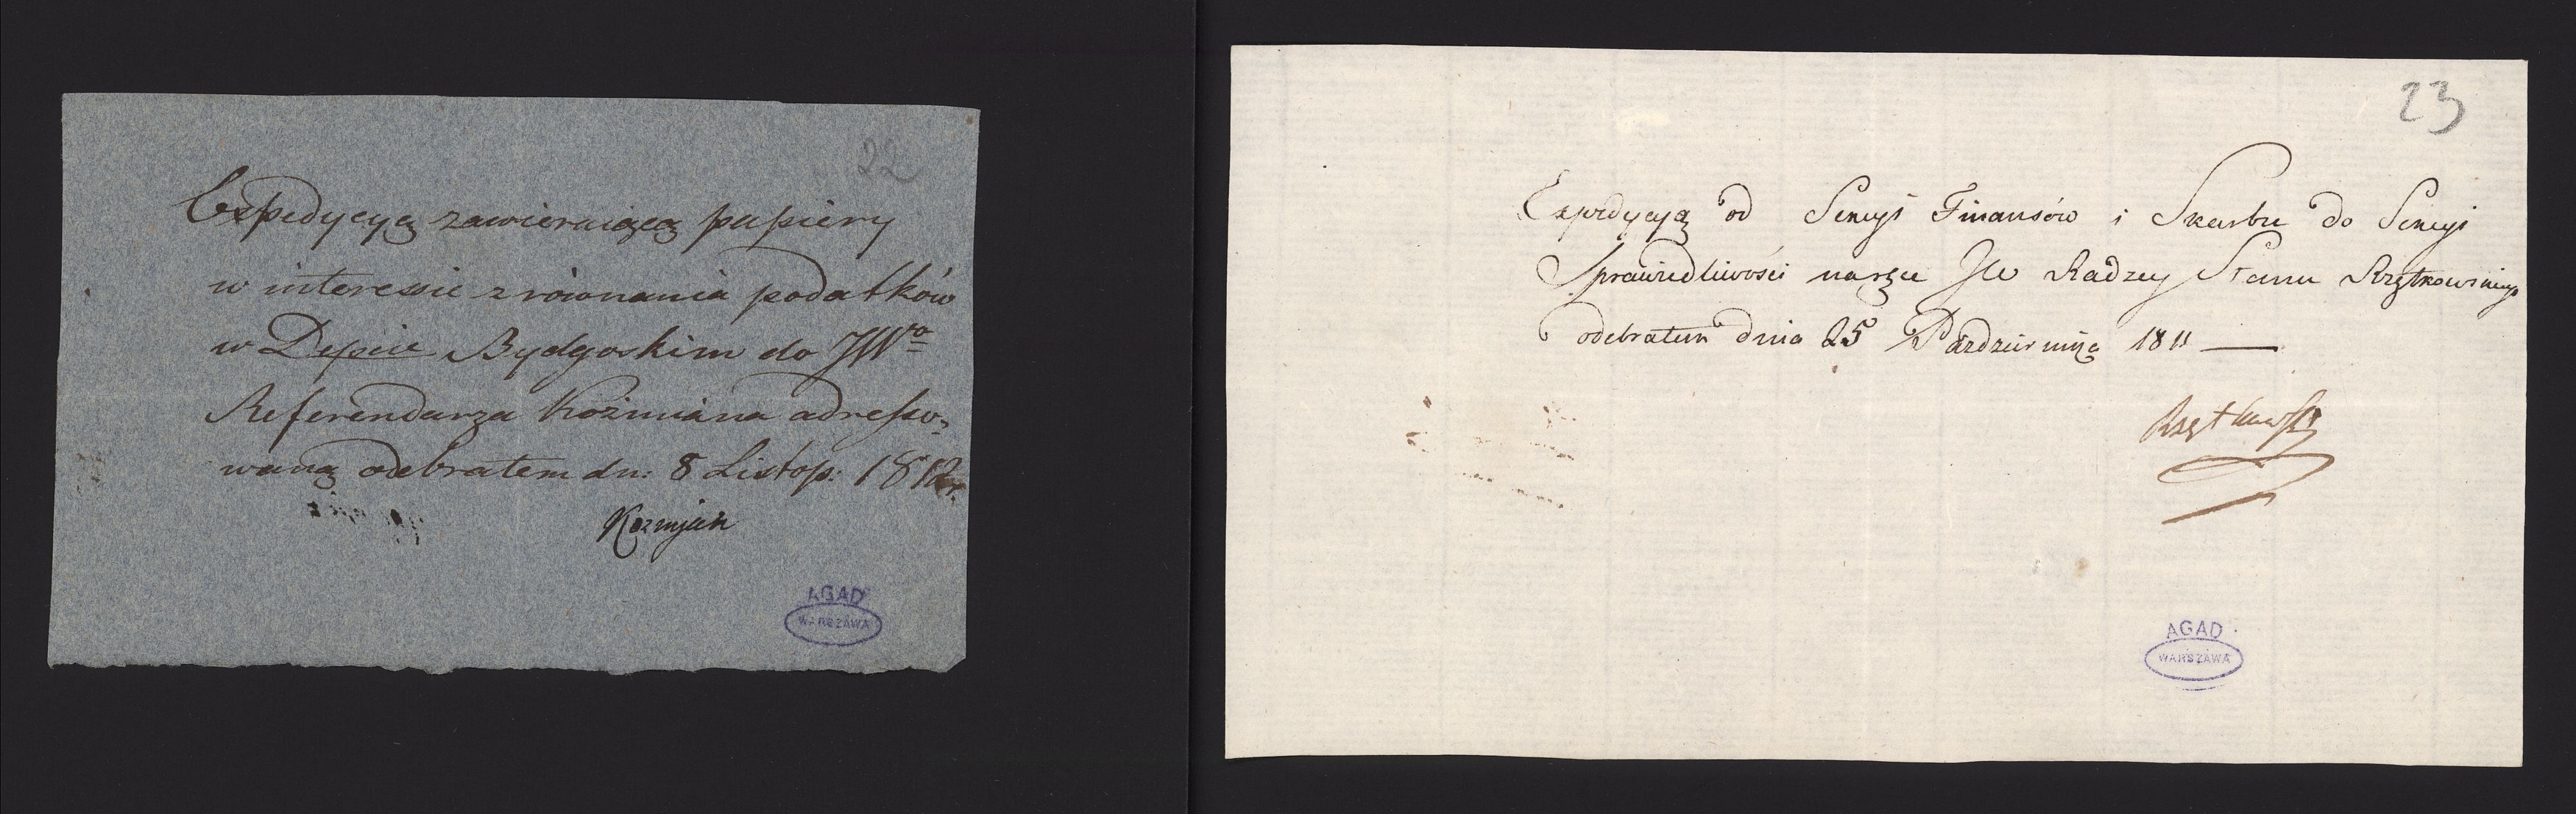 22
Expedycyą zawieraiącą papiery
w interessie zrównania podatków
w Depcie Bydgoskim do JWo
Referendarza Koźmiana adresso=
waną odebrałem dn: 8 Listop: 1812r.
Kozmjan
AGAD
WARSZAWA
23
Expedycyą od Sekcyi Finansów i Skarbu do Sekcyi
Sprawiedliwości na ręce JW Radzcy Stanu Rzętkowskiego
odebrałem dnia 25 Pazdziernika 1811 —
Rzętkowski
AGAD
WARSZAWA